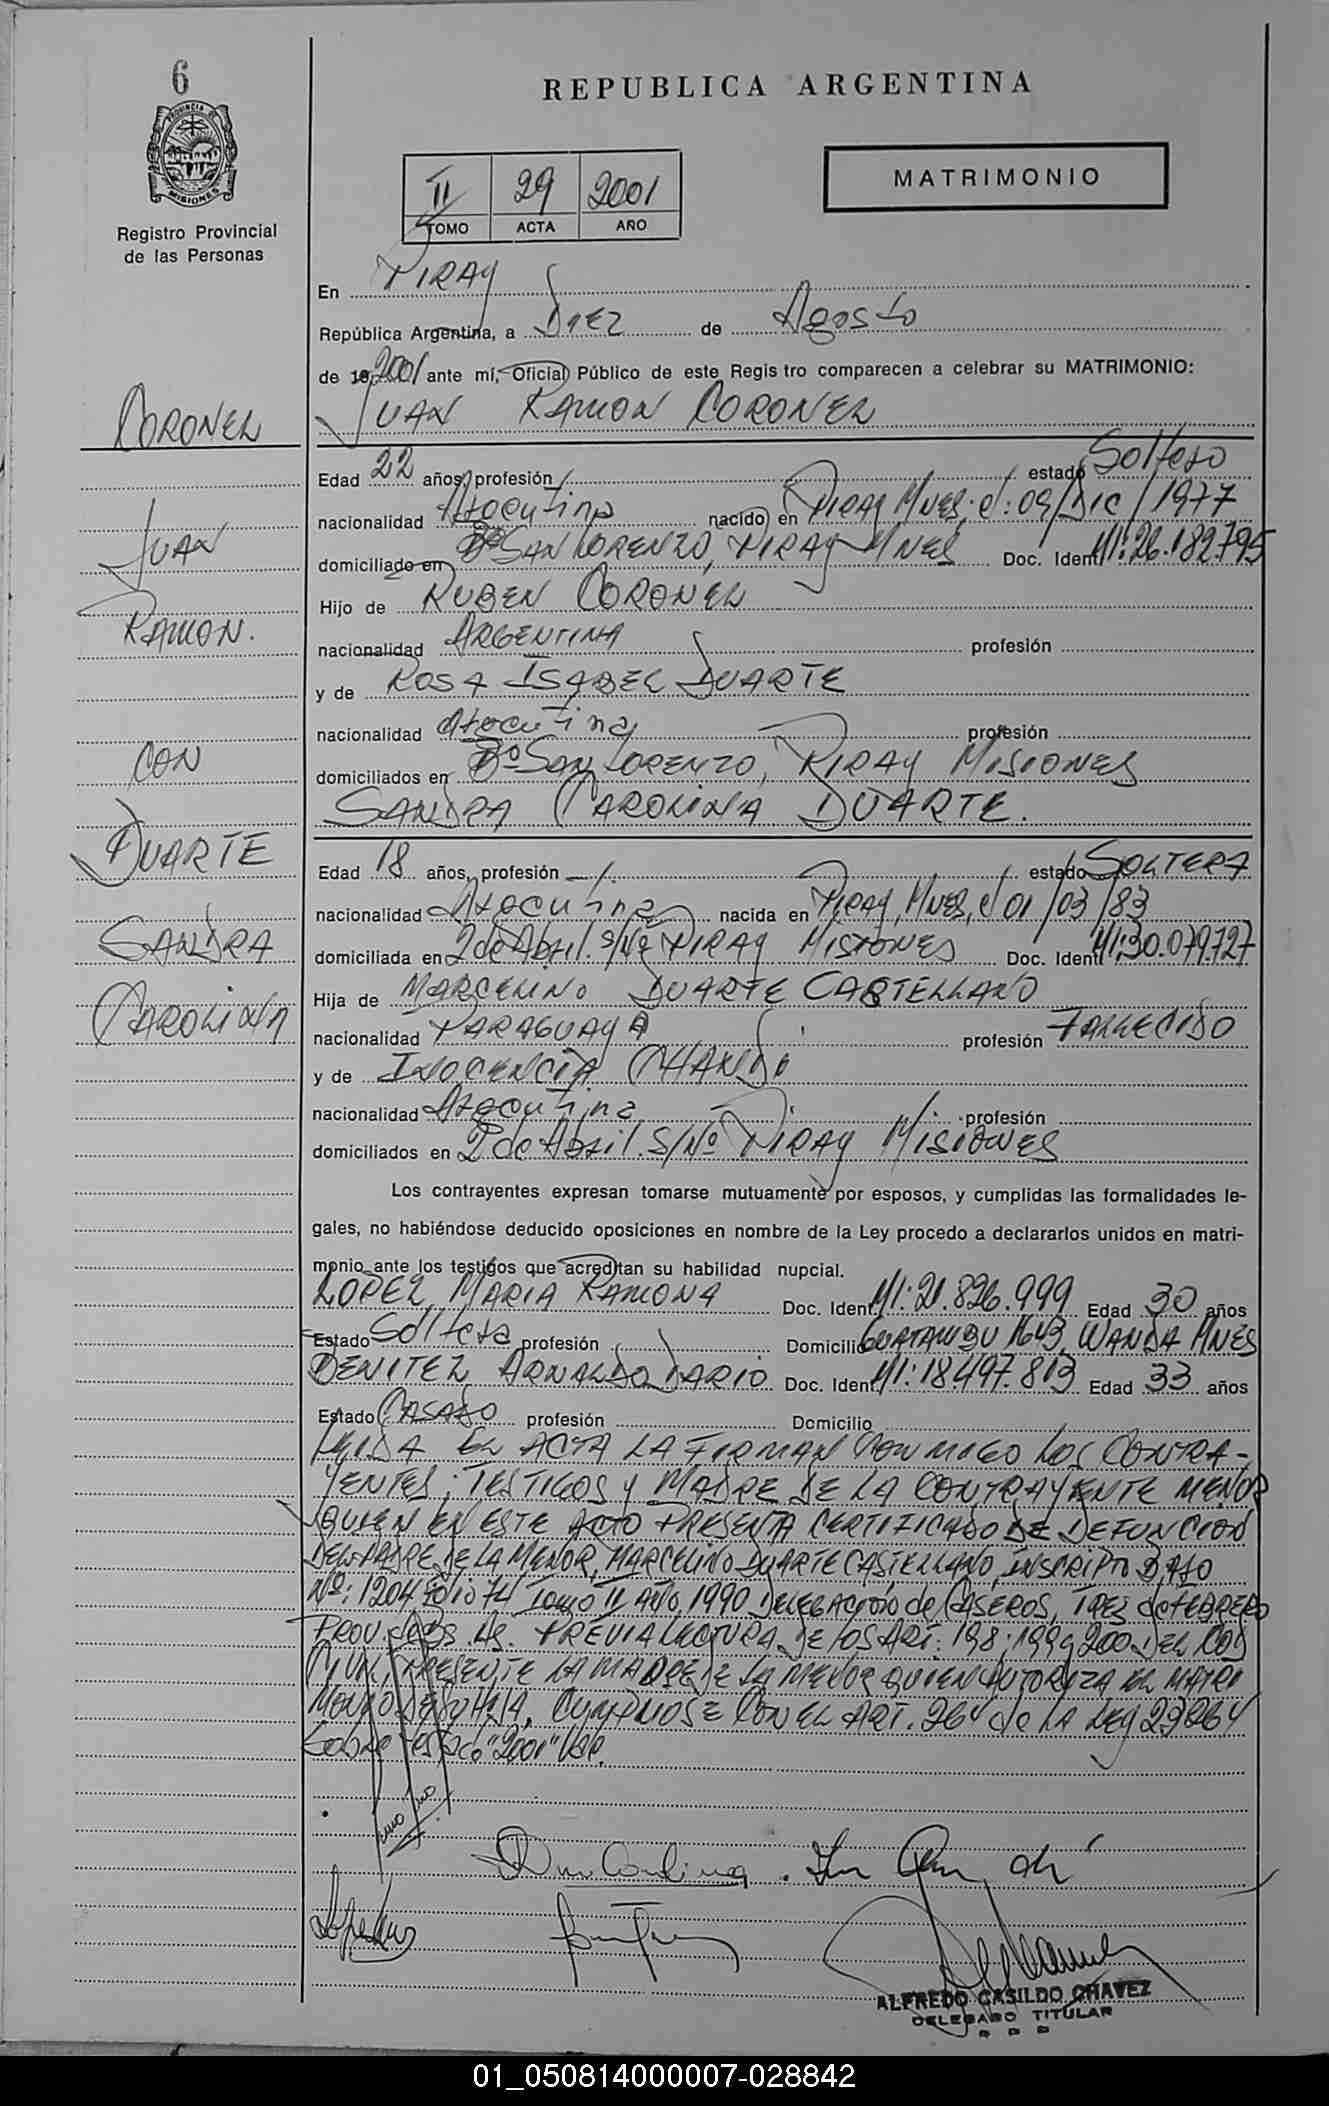 6
PROVINCIA DE
MISIONES
Registro Provincial
de las Personas
REPUBLICA ARGENTINA
II 29 2001
TOMO ACTA AÑO
MATRIMONIO
En PIRAY
República Argentina, a DIEZ de Agosto
de 19 2001 ante mí, Oficial Público de este Registro comparecen a celebrar su MATRIMONIO:
JUAN RAMON CORONEL
CORONEL
JUAN
RAMON.
CON
DUARTE
SANDRA
CAROLINA
Edad 22 años, profesión / estado Soltero
nacionalidad Argentina nacido en PIRAY Mnes, el: 09/Dic/1977
domiciliado en Bº SAN LORENZO, PIRAY MNES Doc. Ident. MI: 26.182.795
Hijo de RUBEN CORONEL
nacionalidad ARGENTINA profesión
y de ROSA ISABEL DUARTE
nacionalidad Argentina profesión
domiciliados en Bº San LORENZO, PIRAY MISIONES
SANDRA CAROLINA DUARTE.
Edad 18 años, profesión —/. estado SOLTERA
nacionalidad Argentina nacida en PIRAY, MNES, el 01/03/83
domiciliada en 2 de Abril S/Nº PIRAY MISIONES Doc. Ident. MI: 30.079.727
Hija de MARCELINO DUARTE CASTELLANO
nacionalidad PARAGUAYA profesión FALLECIDO
y de INOCENCIA
nacionalidad Argentina profesión
domiciliados en 2 de Abril S/Nº PIRAY MISIONES
Los contrayentes expresan tomarse mutuamente por esposos, y cumplidas las formalidades le-
gales, no habiéndose deducido oposiciones en nombre de la Ley procedo a declararlos unidos en matri-
monio ante los testigos que acreditan su habilidad nupcial.
LOPEZ, MARIA RAMONA Doc. Ident. MI: 21.826.999 Edad 30 años
Estado Soltera profesión Domicilio GUATAMBU 1643, WANDA MNES
BENITEZ ARNALDO DARIO Doc. Ident. MI: 18.497.813 Edad 33 años
Estado CASADO profesión Domicilio
LEIDA EL ACTA LA FIRMAN CONMIGO LOS CONTRA-
YENTES; TESTIGOS y MADRE DE LA CONTRAYENTE MENOR
QUIEN EN ESTE ACTO PRESENTA CERTIFICADO DE DEFUNCION
DEL PADRE DE LA MENOR, MARCELINO DUARTE CASTELLANO, INSCRIPTO BAJO
Nº: 1204 Folio 74 Tomo II Año 1990 DELEGACION de CASEROS, TRES de FEBRERO
PROV. de Bs. As. PREVIA LECTURA DE LOS ART: 198; 199 y 200 DEL COD
CIVIL, PRESENTE LA MADRE DE LA MENOR QUIEN AUTORIZA EL MATRI
MONIO DE SU HIJA. CUMPLIOSE CON EL ART. 264 de LA LEY 23264
Sobre raspado "2001" Vale.
ALFREDO CASILDO CHAVEZ
DELEGADO TITULAR
01_050814000007-028842